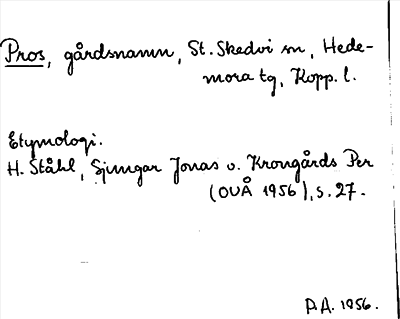 Pros, gårdsnamn, St. Skedvi sn, Hede-
mora tg, Kopp. l.
Etymologi.
H. Ståhl, Sjungar Jonas o. Krongårds Per
(OUÅ 1956), s. 27.
P.A. 1956.